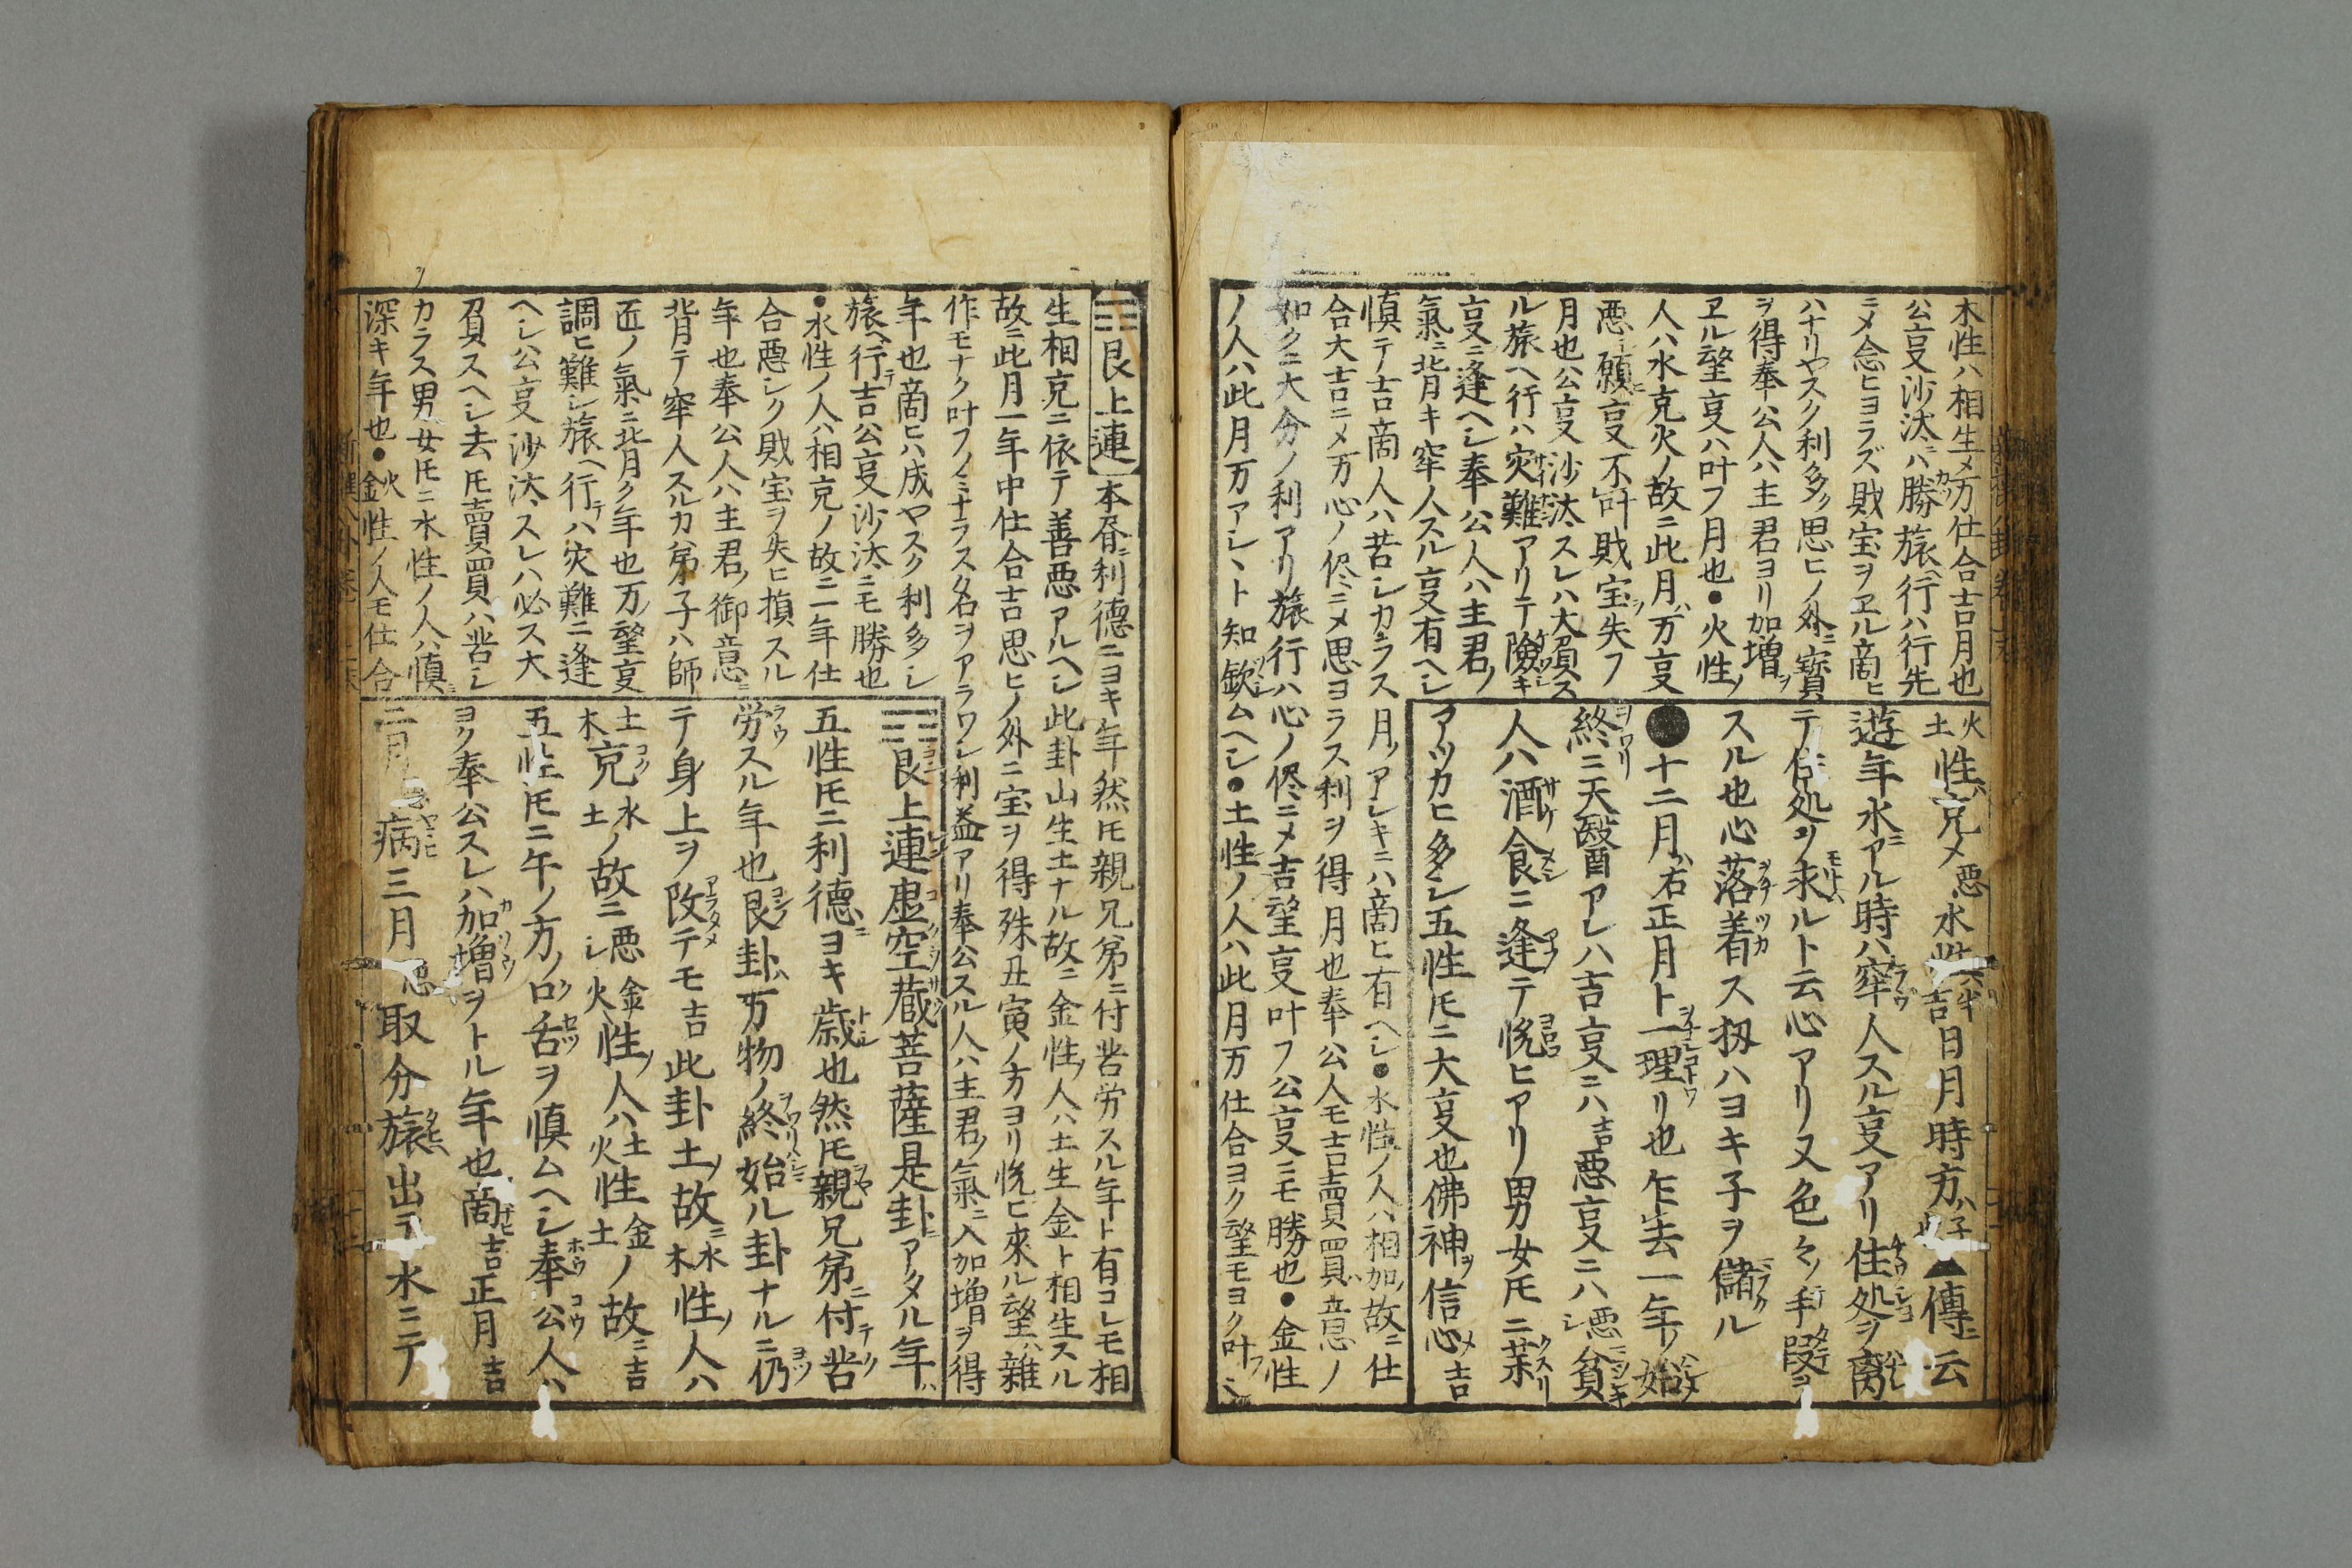 木性ハ相生〆万仕合吉月也
公亊沙汰ニハ勝旅ヘ行ハ行先
ニ〆念ヒヨラズ財宝ヲヱル商ヒ
ハナリヤスク利多ク思ヒノ外ニ寳
ヲ得奉公人ハ主君ヨリ加増ヲ
ヱル望亊ハ叶フ月也●火性ノ
人ハ水克火ノ故ニ此月ハ万亊
悪シ願亊不叶財宝ヲ失フ
月也公亊沙汰スレハ大負ス
ル旅ヘ行ハ灾難アリテ險キ
亊ニ逢ヘシ奉公人ハ主君ノ
氣ニ背キ窂人スル亊有ヘシ
慎テノ吉商人ハ苦シカラス月ノアレキニハ商ヒ有ヘシ●水性ノ人ハ相加ノ故ニ仕
合大吉ニ〆万心ノ侭ニ〆思ヨラス利ヲ得月也奉公人モ吉賣買ハ意ノ
如クニ大分ノ利アリ旅行ハ心ノ侭ニ〆吉望亊叶フ公亊ニモ勝也●金性
ノ人ハ此月万アシヽト知歟ムヘシ●土性ノ人ハ此月万仕合ヨク望モヨク叶フ
火土性ハ克〆悪水性共半吉日月時方ハ子▲傳ニ云
遊年水ニアル時ハ窂人スル亊アリ住処ヲ离
テ住処ヲ求ルト云心アリ又色々ノ手段ヲ
スル也心落着ス扨ハヨキ子ヲ儲ル
●十二月ハ右正月ト一理リ也乍去一年ノ始
終ニ天醫アレハ吉亊ニハ吉悪亊ニハ悪シ貧
人ハ酒食ニ逢テ悦ヒアリ男女𪜈ニ薬
アツカヒ多シ五性𪜈ニ大亊也佛神ヲ信心〆吉
☶艮上連 本屠ニ利德ニヨキ年然𪜈親兄弟ニ付苦労スル年ト有コレモ相
生相克ニ依テ善悪アルヘシ此卦山生土ナル故ニ金性ノ人ハ土生金ト相生スル
故ニ此月一年中仕合吉思ヒノ外ニ宝ヲ得殊丑寅ノ方ヨリ悦ヒ来ル望ハ雑
作モナク叶フノミナラス名ヲアラワシ利益アリ奉公スル人ハ主君ノ氣ニ入加増ヲ得
年也商ヒハ成ヤスク利多シ
旅ヘ行テ吉公亊沙汰ニモ勝也
●水性ノ人ハ相克ノ故ニ一年仕
合悪シク財宝ヲ失ヒ損スル
年也奉公人ハ主君ノ御意ニ
背テ窂人スルカ弟子ハ師
匠ノ氣ニ背ク年也万ノ望亊
調ヒ難シ旅ヘ行テハ灾難ニ逢
ヘシ公亊沙汰スレハ必ス大
負スヘシ去𪜈賣買ハ苦シ
カラス男女𪜈ニ水性ノ人ハ慎ミ
深キ年也●火金性ノ人モ仕合
☶艮上連虚空蔵菩薩是卦ニアタル年ハ
五性𪜈ニ利德ニヨキ歳也然𪜈親兄弟ニ付テク苦
労スル年也艮卦ハ万物ノ終始ル卦ナルニ仍
テ身上ヲ改テモ吉此卦土ノ故ニ水木性ノ人ハ
土木克水土ノ故ニ悪シ金火性ノ人ハ土火性金土ノ故ニ吉
五性𪜈ニ午ノ方ノ口舌ヲ慎ムヘシ奉公人ハ
ヨク奉公スレハ加増ヲトル年也商吉正月吉
二月病三月取分旅出テ水ニテ